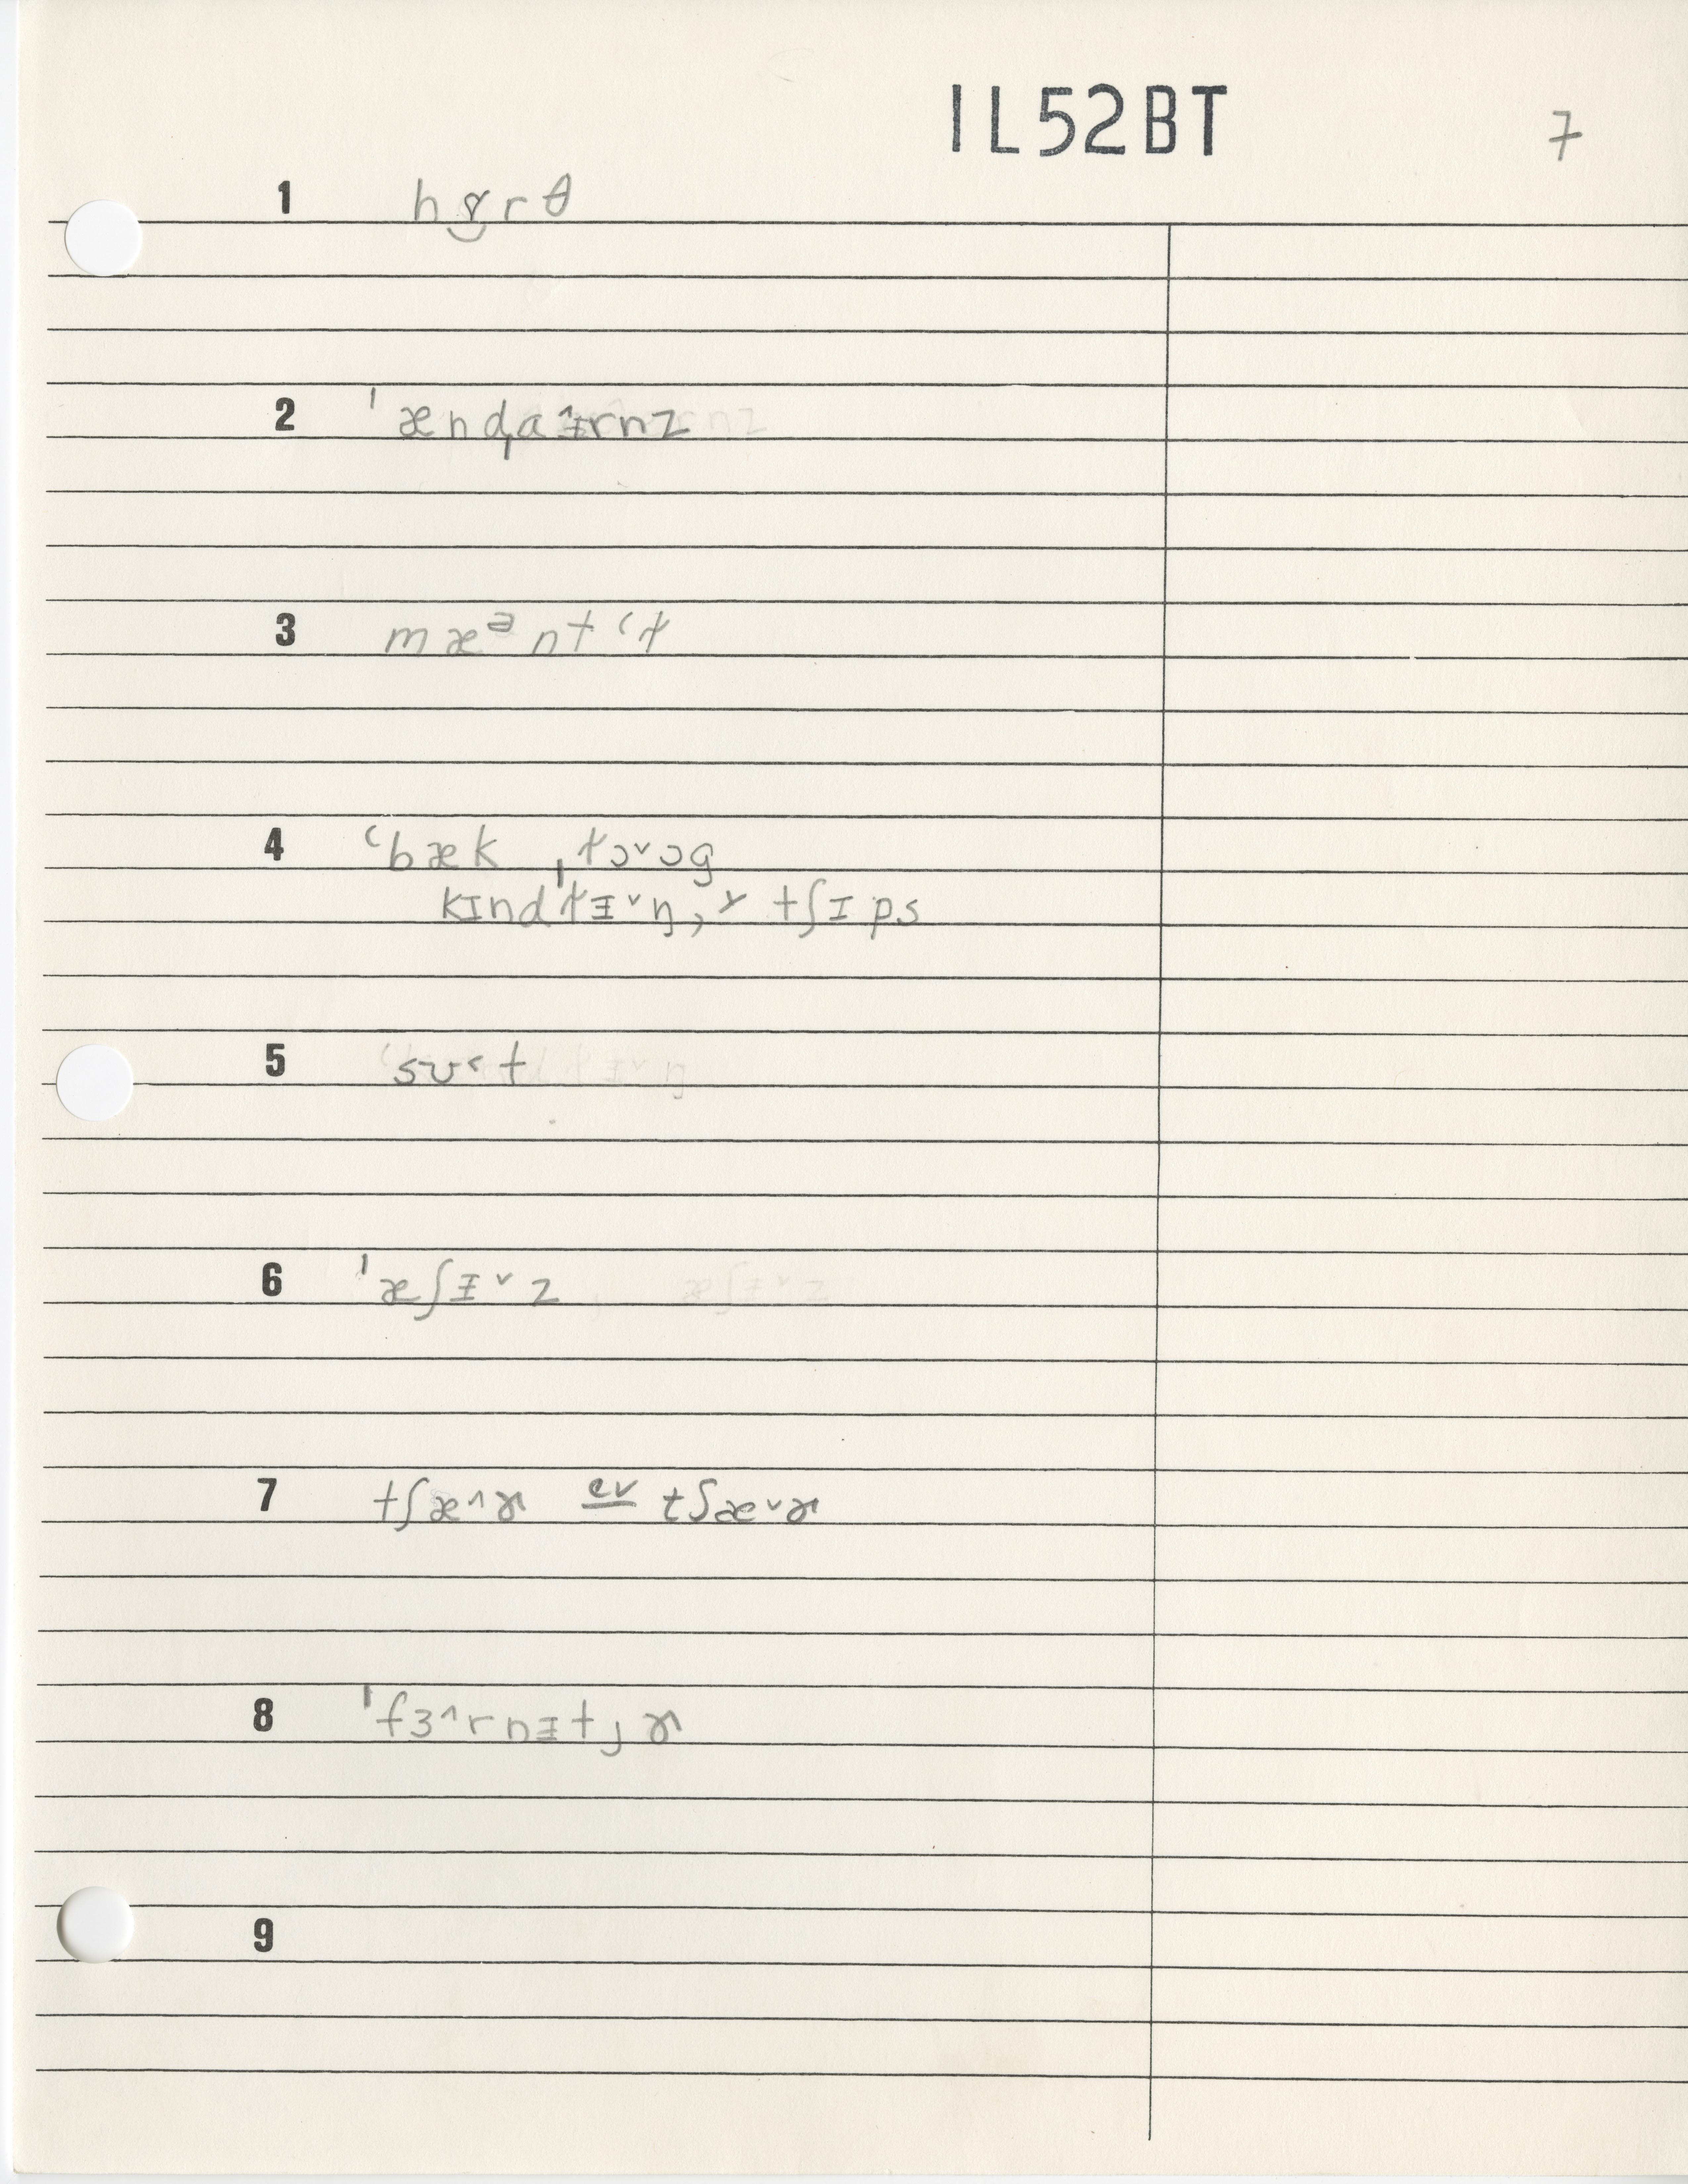 1L52BT 7
1 hɤ̯rθ
2 ˈænd̩aɪ̵˄rnz
3 mæᵊnt˂ɫ
4 ˂bæk ˌɫɔ˅ɔg
kɪnd'ɫɪ̵˅ŋ, ɤ tʃɪps
5 sʊ˂t
6 ˈæʃɪ̵˅z
7 tʃæ˄ɚ cv tʃæ˅ɚ
8 ˈfɜ˄rnɪ̵tɟɚ
9